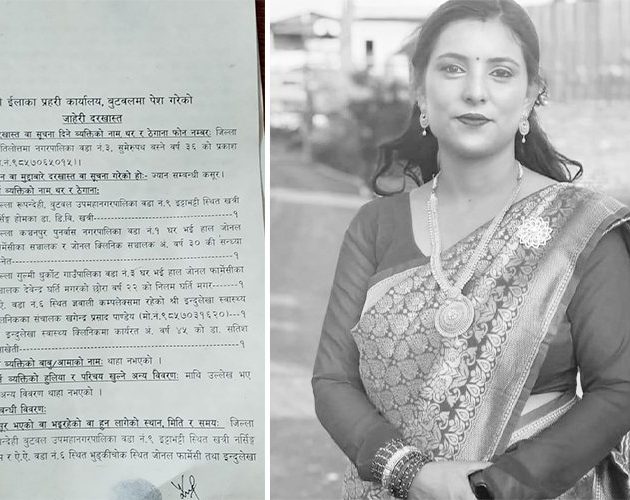 ईलाका प्रहरी कार्यालय, बुटवलमा पेश गरेको
जाहेरी दरखास्त
वा सूचना दिने व्यक्तिको नाम थर र ठेगाना फोन नम्बरः जिल्ला
नगरपालिका वडा नं.३, सुमेरुपथ बस्ने वर्ष ३६ को प्रकाश
मुद्दाबारे दरखास्त वा सूचना गरेको होः- ज्यान सम्बन्धी कसूर।
व्यक्तिको नाम थर र ठेगानाः
रूपन्देही, बुटवल उपमहानगरपालिका वडा नं.९ इट्टाभट्टी स्थित खत्री
होमका डा. डि.बि. खत्री---१
कञ्चनपुर पुनर्वास नगरपालिका वडा नं.१ घर भई हाल जोनल
सञ्चालक र जोनल क्लिनिक सञ्चालक अं. वर्ष ३० की सन्ध्या
---१
गुल्मी धुर्कोट गाउँपालिका वडा नं.३ घर भई हाल जोनल फार्मेसीका
देवेन्द्र घर्ति मगरको छोरा वर्ष २२ को निलम घर्ति मगर---१
वडा नं.६ स्थित ज्ञवाली कम्प्लेक्समा रहेको श्री इन्दुलेखा स्वास्थ्य
खगेन्द्र प्रसाद पाण्डेय (मो.नं.९८५७०३९६२०)---१
इन्दुलेखा स्वास्थ्य क्लिनिकमा कार्यरत अं. वर्ष ४५ को डा. सतिश
---१
व्यक्तिको बाबु/आमाको नामः थाहा नभएको ।
व्यक्तिको हुलिया र परिचय खुल्ने अन्य विवरणः माथि उल्लेख भए
अन्य विवरण थाहा नभएको ।
विवरणः
भएको वा भइरहेको वा हुन लागेको स्थान, मिति र समयः जिल्ला
बुटवल उपमहानगरपालिका वडा नं.९ इट्टाभट्टी स्थित खत्री नर्सिङ्ग
र ऐ.ऐ. वडा नं.६ स्थित भुडुकीचोक स्थित जोनल फार्मेसी तथा इन्दुलेखा